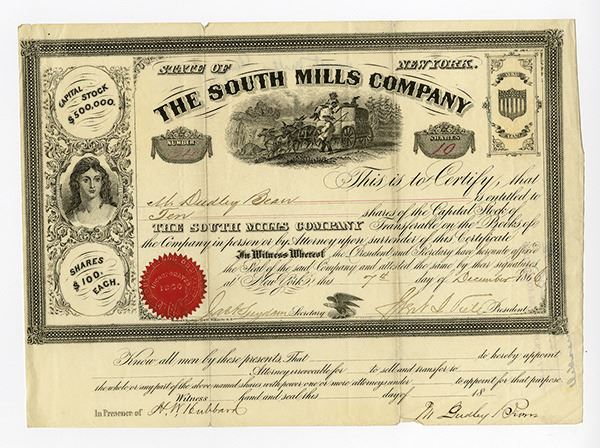 STATE OF NEW YORK.
THE SOUTH MILLS COMPANY
CAPITAL STOCK $500,000.
NUMBER
SHARES
10
This is to Certify, that
M. Dudley Bean is entitled to
Ten shares of the Capital Stock of
THE SOUTH MILLS COMPANY Transferable on the Books of
the Company in person or by Attorney upon surrender of this Certificate
In Witness Whereof the President and Secretary have hereunto affixed
the Seal of the said Company and attested the same by their signatures
at New York, this 7th day of December 186
Secretary President
SHARES $100. EACH.
Know all men by these presents, That do hereby appoint
Attorney irrevocable for to sell and transfer to
the whole or any part of the above named shares with power one or more attorneys under to appoint for that purpose.
Witness hand and seal this day of 18
In Presence of H. W. Hubbard M. Dudley Bean